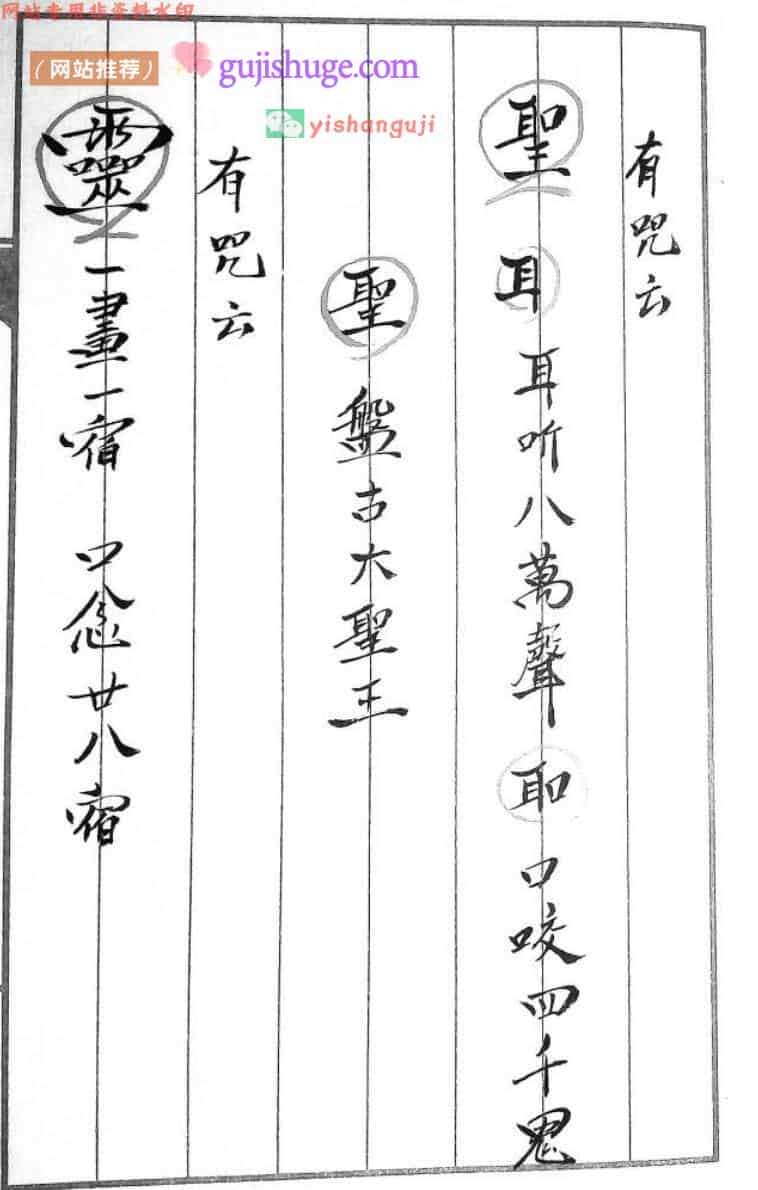 网站专用非资料水印
（网站推荐）
gujishuge.com
yishanguji
有咒云
聖 耳 耳听八萬聲 耶 口咬四千鬼
聖 盤古大聖王
有咒云
靈 一畫一宿 口念廿八宿